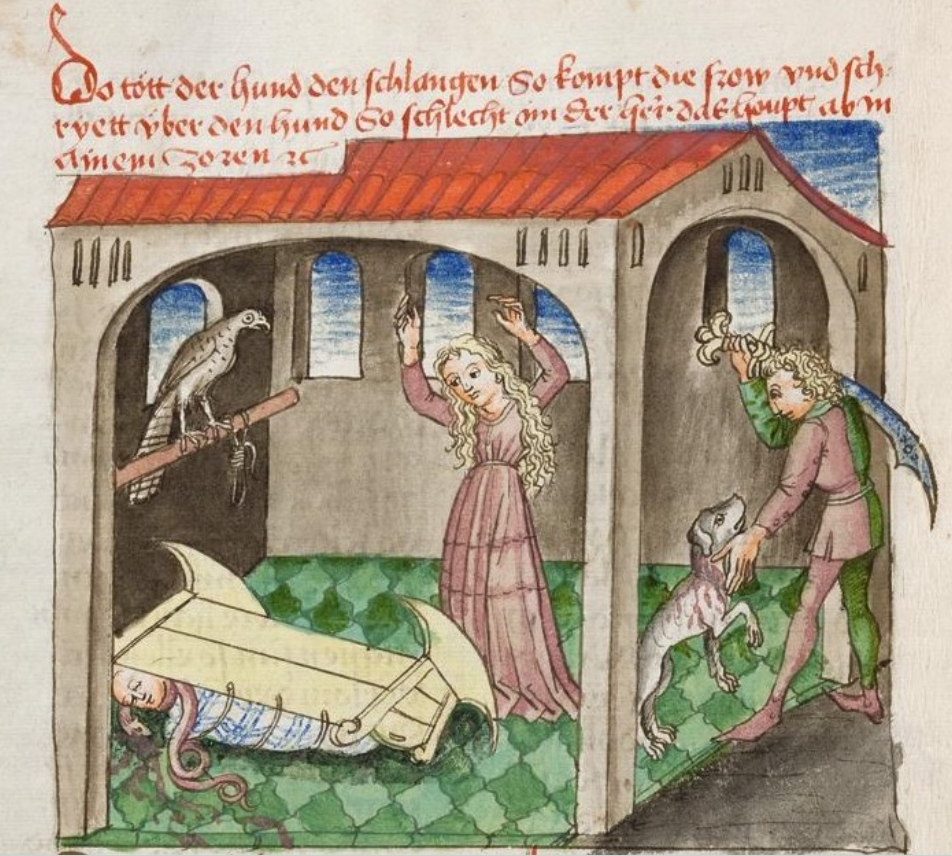 Do tött der hund den schlangen So kompt die frow vnd sch-
ryett vber den hund So schlecht im der her das houpt ab in
ainem zoren ꝛc